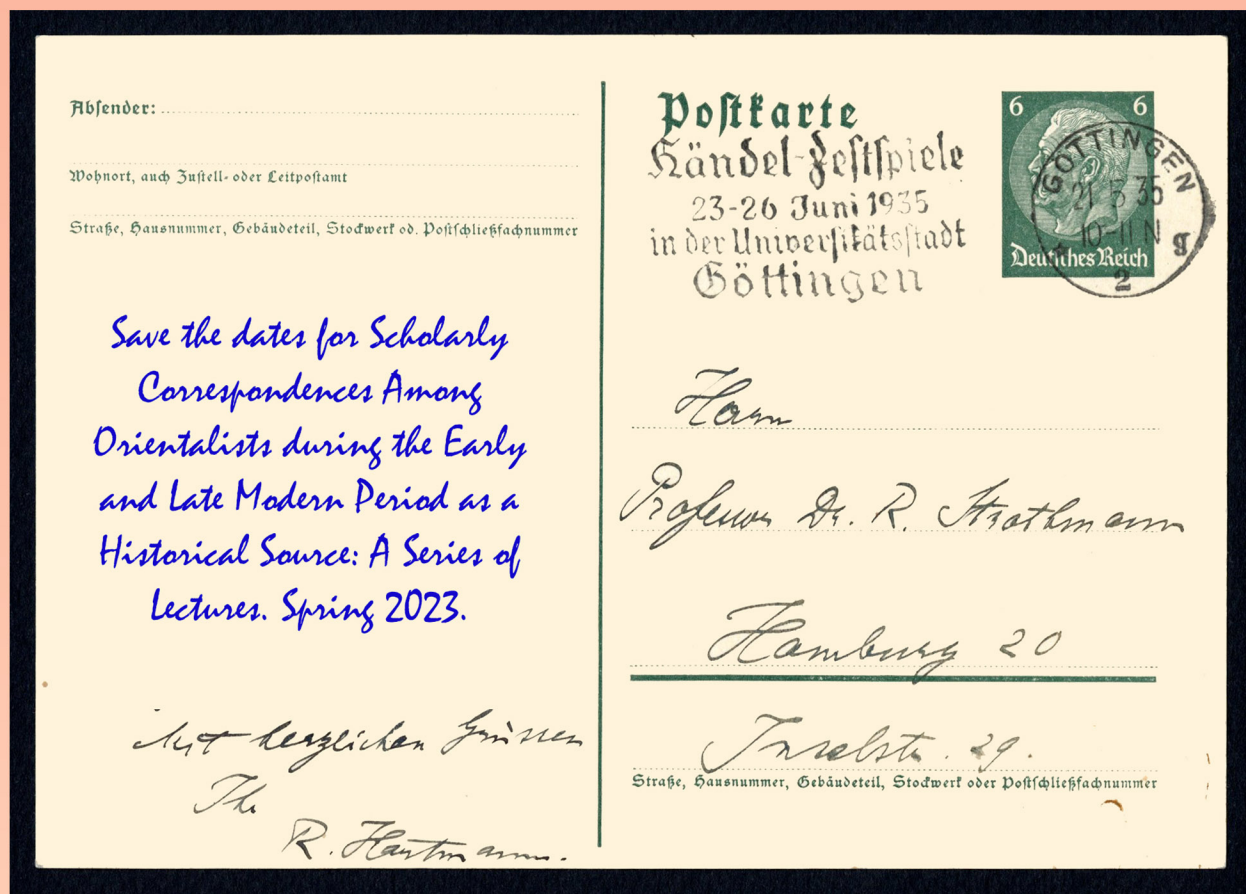 Absender:
Wohnort, auch Zustell- oder Leitpostamt
Straße, Hausnummer, Gebäudeteil, Stockwerk od. Postschließfachnummer
Save the dates for Scholarly
Correspondences Among
Orientalists during the Early
and Late Modern Period as a
Historical Source: A Series of
Lectures. Spring 2023.
Mit herzlichen Grüssen
Ihr
R. Hartmann.
Postkarte
Händel-Festspiele
23-26 Juni 1935
in der Universitätsstadt
Göttingen
6 6
Deutsches Reich
GÖTTINGEN
21 3 35
10-11 N
* g
2
Herrn
Professor Dr. R. Strothmann
Hamburg 20
Inselstr. 29.
Straße, Hausnummer, Gebäudeteil, Stockwerk oder Postschließfachnummer